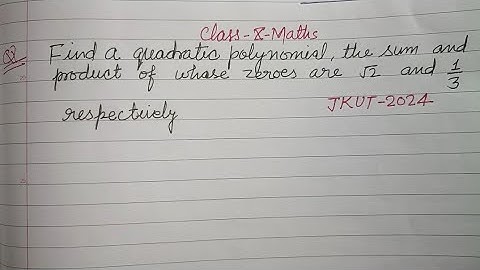 Class-X-Maths
Q2 Find a quadratic polynomial, the sum and
product of whose zeroes are √2 and 1/3
respectively
JKUT-2024